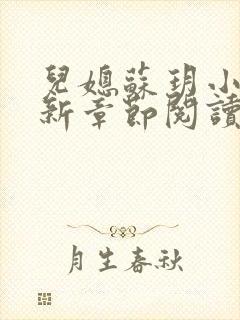 兒媳蘇玥小
新章節閱讀
月生春秋